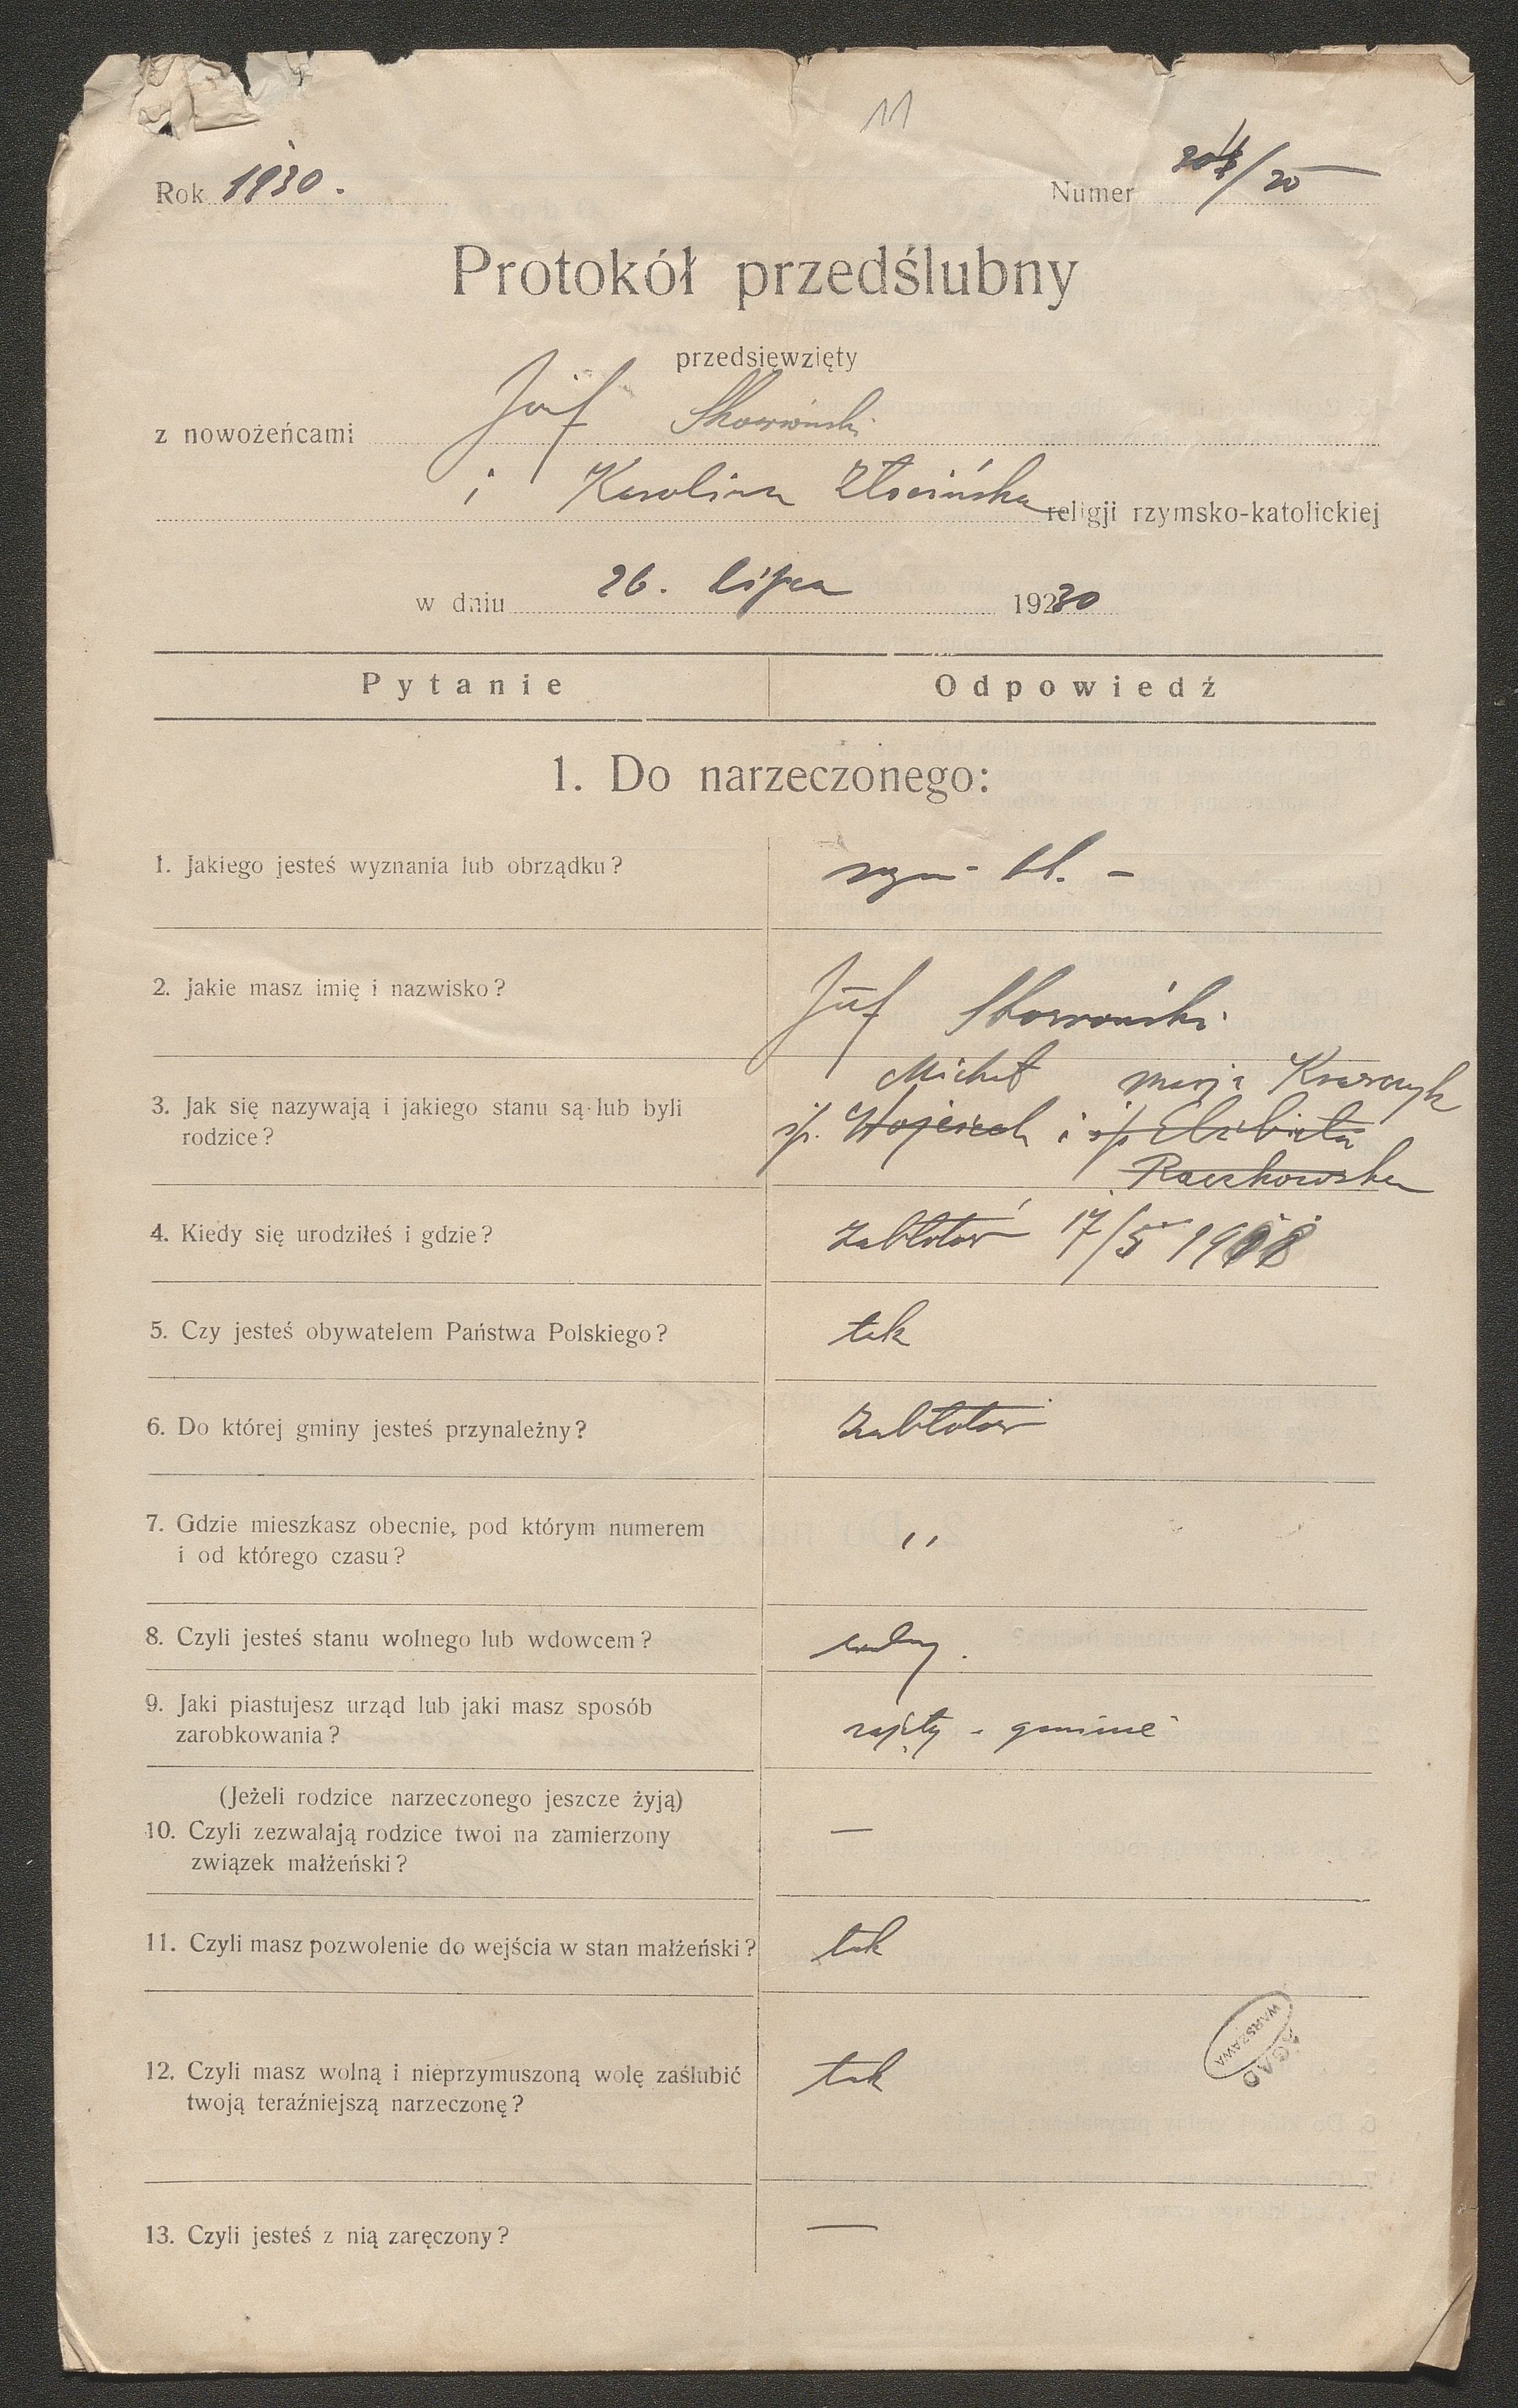 11
Rok 1930.
Numer /20
Protokół przedślubny
przedsięwzięty
z nowożeńcami Józef Skowroński
i Karolina Złocińska religji rzymsko-katolickiej
w dniu 26. lipca 19230
Pytanie Odpowiedź
1. Do narzeczonego:
1. Jakiego jesteś wyznania lub obrządku? rzym-
2. Jakie masz imię i nazwisko? Józef Skowroński
Michał Marja Krawczyk
3. Jak się nazywają i jakiego stanu są lub byli śp. Wojciech i śp Elżbieta
rodzice? Raczkowska
4. Kiedy się urodziłeś i gdzie? Zabłotów 17/5 1908
5. Czy jesteś obywatelem Państwa Polskiego? tak
6. Do której gminy jesteś przynależny? Zabłotów
7. Gdzie mieszkasz obecnie, pod którym numerem
i od którego czasu? "
8. Czyli jesteś stanu wolnego lub wdowcem? wolny.
9. Jaki piastujesz urząd lub jaki masz sposób
zarobkowania? zajęty - gminie
(Jeżeli rodzice narzeczonego jeszcze żyją)
10. Czyli zezwalają rodzice twoi na zamierzony —
związek małżeński?
11. Czyli masz pozwolenie do wejścia w stan małżeński? tak
12. Czyli masz wolną i nieprzymuszoną wolę zaślubić tak
twoją teraźniejszą narzeczonę?
13. Czyli jesteś z nią zaręczony? —
AGAD
WARSZAWA